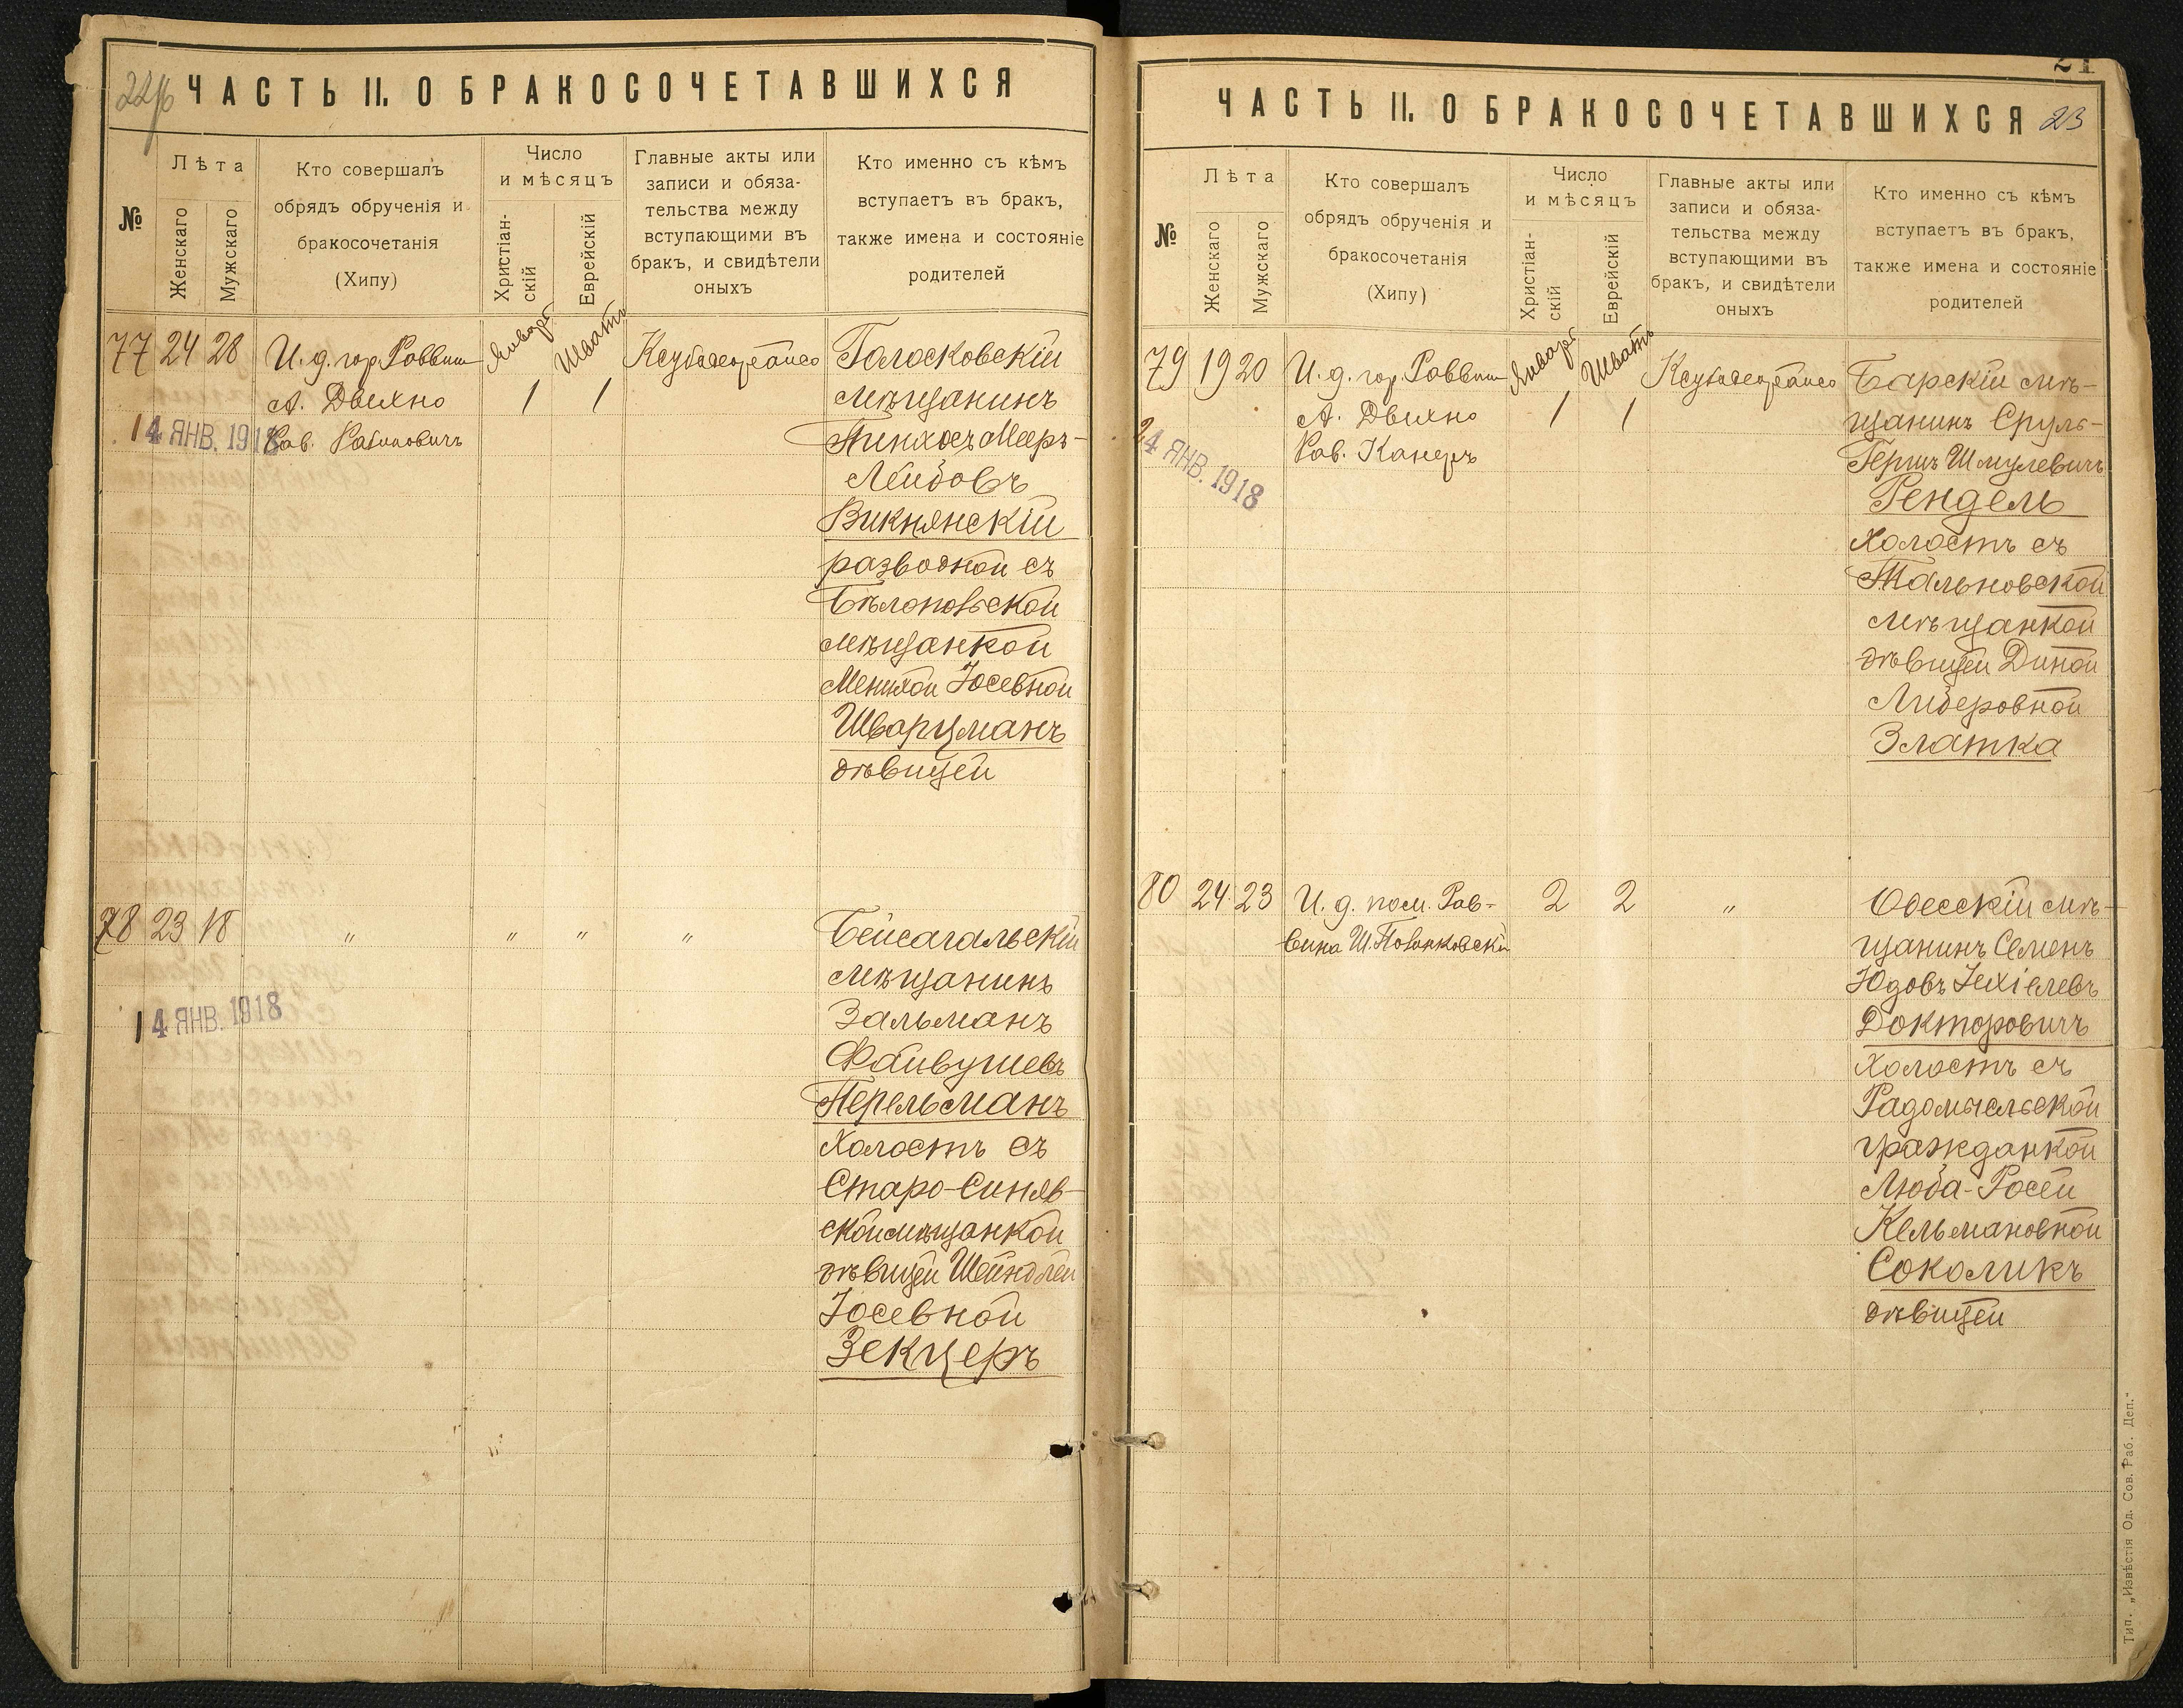 22/б
ЧАСТЬ II. О БРАКОСОЧЕТАВШИХСЯ
№
Лѣта
Женскаго
Мужскаго
Кто совершалъ
обрядъ обрученія и
бракосочетанія
(Хипу)
Число
и мѣсяцъ
Христіан-
скій
Еврейскій
Главные акты или
записи и обяза-
тельства между
вступающими въ
бракъ, и свидѣтели
оныхъ
Кто именно съ кѣмъ
вступаетъ въ бракъ,
также имена и состояніе
родителей
77 24 28
И. д. гор. Раввин
А. Двихно
Рав. Рабиновичъ
Январь
1
Шватъ
1
14 ЯНВ. 1918
Голосковскій
мѣщанинъ
Пинхосъ Мееръ-
Лейбовъ
Викнянскій
разводной съ
мѣщанкой
Іосевной
Шварцманъ
дѣвицей
78 23 18
" " " "
14 ЯНВ. 1918
Бейсагальскій
мѣщанинъ
Зальманъ
Файвушевъ
Перельманъ
Холостъ съ
Старо-Синяв-
ской мѣщанкой
дѣвицей Шейндлей
Іосевной
Зекцеръ
21
ЧАСТЬ II. О БРАКОСОЧЕТАВШИХСЯ
23
№
Лѣта
Женскаго
Мужскаго
Кто совершалъ
обрядъ обрученія и
бракосочетанія
(Хипу)
Число
и мѣсяцъ
Христіан-
скій
Еврейскій
Главные акты или
записи и обяза-
тельства между
вступающими въ
бракъ, и свидѣтели
оныхъ
Кто именно съ кѣмъ
вступаетъ въ бракъ,
также имена и состояніе
родителей
79 19 20
И. д. гор. Раввин
А. Двихно
Рав. Канеръ
Январь
1
Шватъ
1
24 ЯНВ. 1918
Барскій мѣ-
щанинъ Сруль-
Гершъ Шмулевичъ
Рендель
Холостъ съ
Тальновской
мѣщанкой
дѣвицей Диной
Лидеровной
Златка
80 24 23
И. д. пом. Рав-
вина Ш.
2 2 "
Одесскій мѣ-
щанинъ Семенъ
Юдовъ Іехіелевъ
Докторовичъ
Холостъ съ
Радомысльской
гражданкой
Люба-Росей
Кельмановной
Соколикъ
дѣвицей
Тип. „Извѣстія Од. Сов. Раб. Деп."